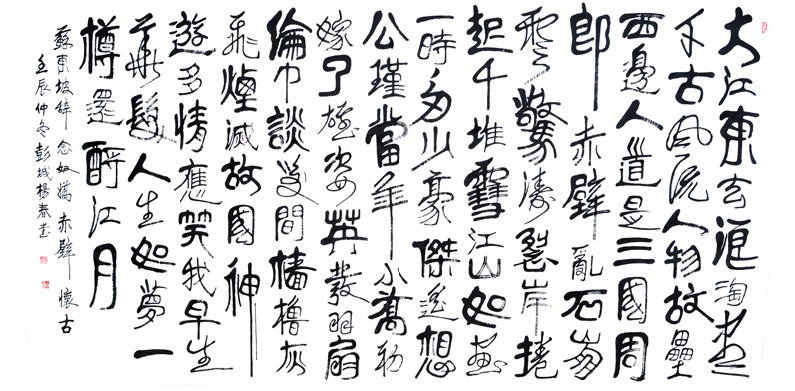 大江東去浪淘盡
千古風流人物故壘
西邊人道是三國周
郎赤壁亂石崩
雲驚濤裂岸捲
起千堆雪江山如畫
一時多少豪傑遙想
公瑾當年小喬初
嫁了雄姿英發羽扇
綸巾談笑間檣櫓灰
飛煙滅故國神
遊多情應笑我早生
華髮人生如夢一
樽還酹江月
蘇東坡辞念奴嬌赤壁懷古
壬辰仲冬彭城楊春